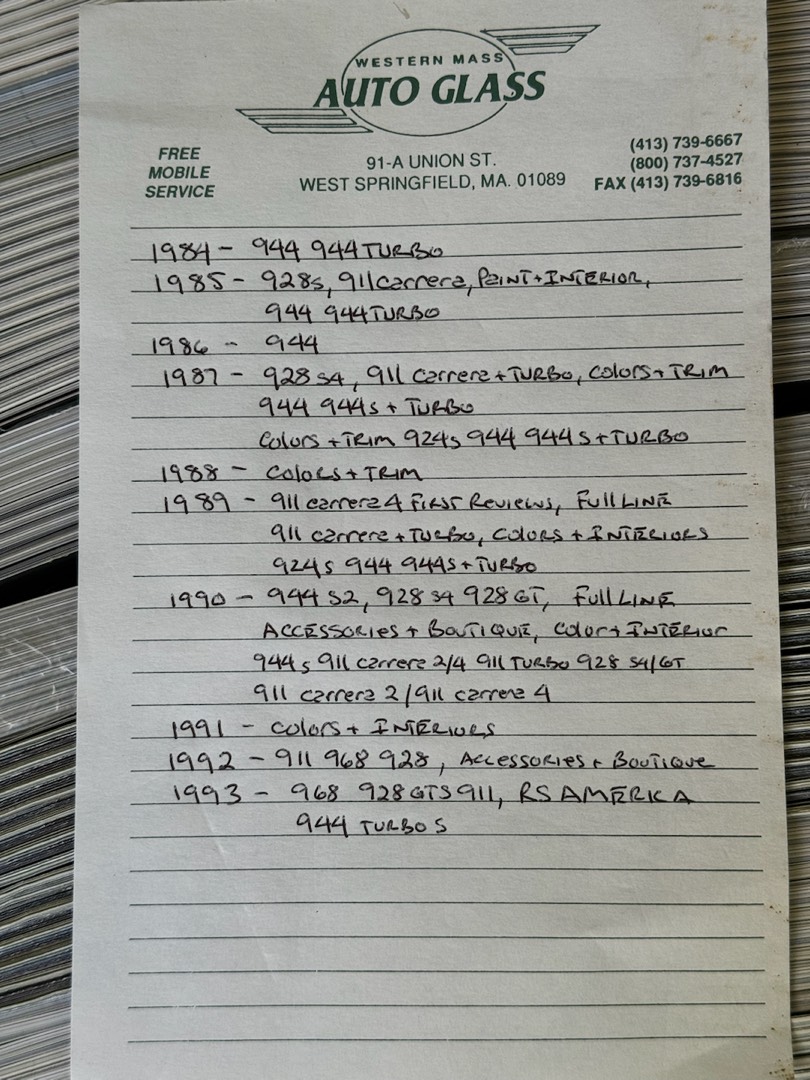 WESTERN MASS
AUTO GLASS
FREE
MOBILE
SERVICE
91-A UNION ST.
WEST SPRINGFIELD, MA. 01089
(413) 739-6667
(800) 737-4527
FAX (413) 739-6816
1984 - 944 944 TURBO
1985 - 928s, 911 carrera, PAINT + INTERIOR,
944 944 TURBO
1986 - 944
1987 - 928 S4, 911 carrera + TURBO, COLORS + TRIM
944 944s + TURBO
Colors + TRIM 924s 944 944 S + TURBO
1988 - COLORS + TRIM
1989 - 911 carrera 4 FIRST REVIEWS, FULL LINE
911 carrera + TURBO, COLORS + INTERIORS
924s 944 944S + TURBO
1990 - 944 S2, 928 S4 928 GT, FULL LINE
ACCESSORIES + BOUTIQUE, Color + INTERIOR
944s 911 carrera 2/4 911 TURBO 928 S4/GT
911 carrera 2 / 911 carrera 4
1991 - Colors + INTERIORS
1992 - 911 968 928, ACCESSORIES + BOUTIQUE
1993 - 968 928 GTS 911, RS AMERICA
944 TURBO S